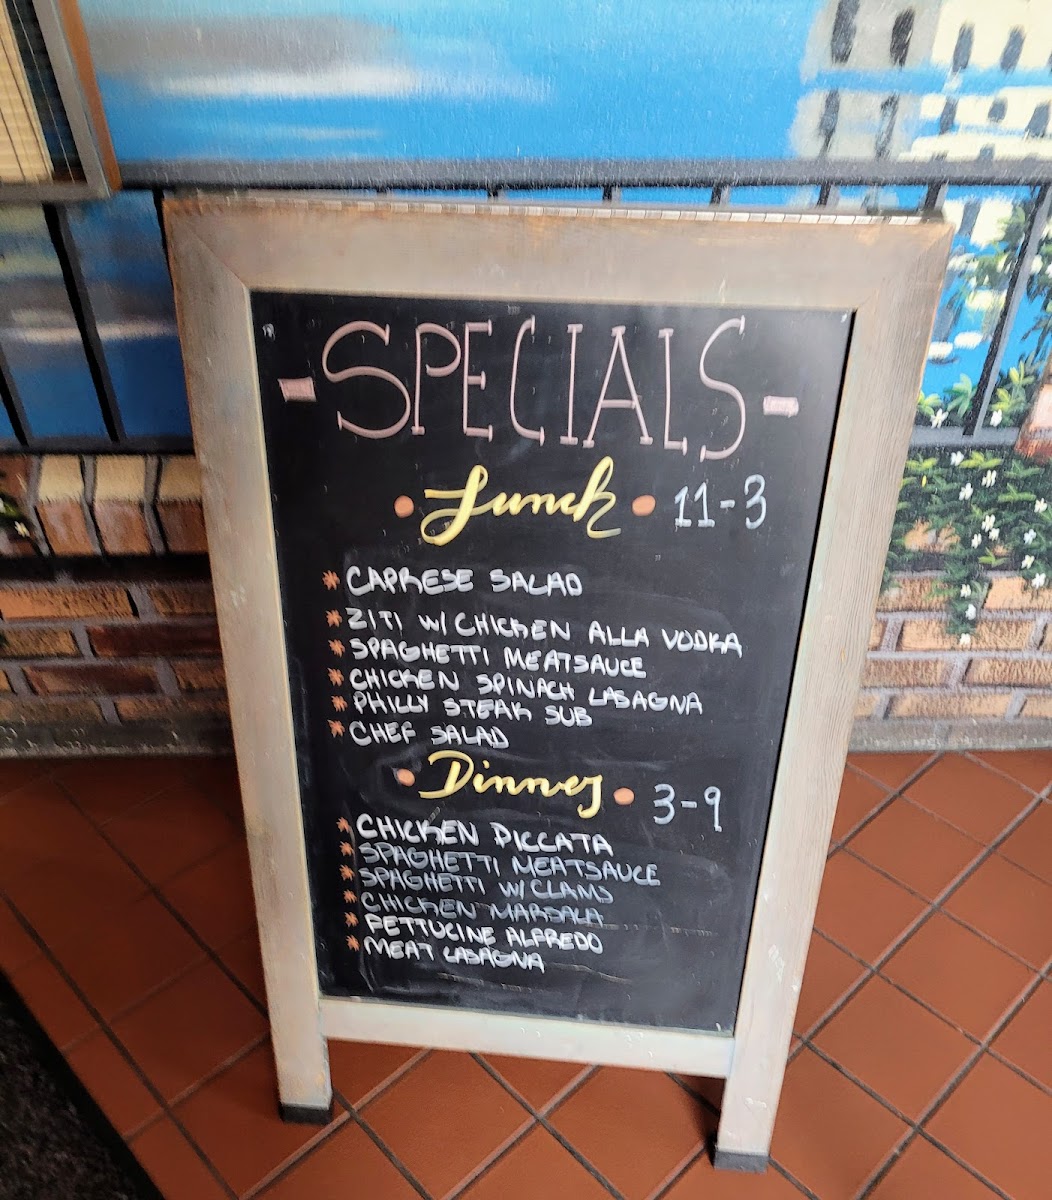 - SPECIALS -
• Lunch • 11-3
* CAPRESE SALAD
* ZITI W/ CHICKEN ALLA VODKA
* SPAGHETTI MEATSAUCE
* CHICKEN SPINACH LASAGNA
* PHILLY STEAK SUB
* CHEF SALAD
• Dinner • 3-9
* CHICKEN PICCATA
* SPAGHETTI MEATSAUCE
* SPAGHETTI W/ CLAMS
* CHICKEN MARSALA
* FETTUCINE ALFREDO
* MEAT LASAGNA